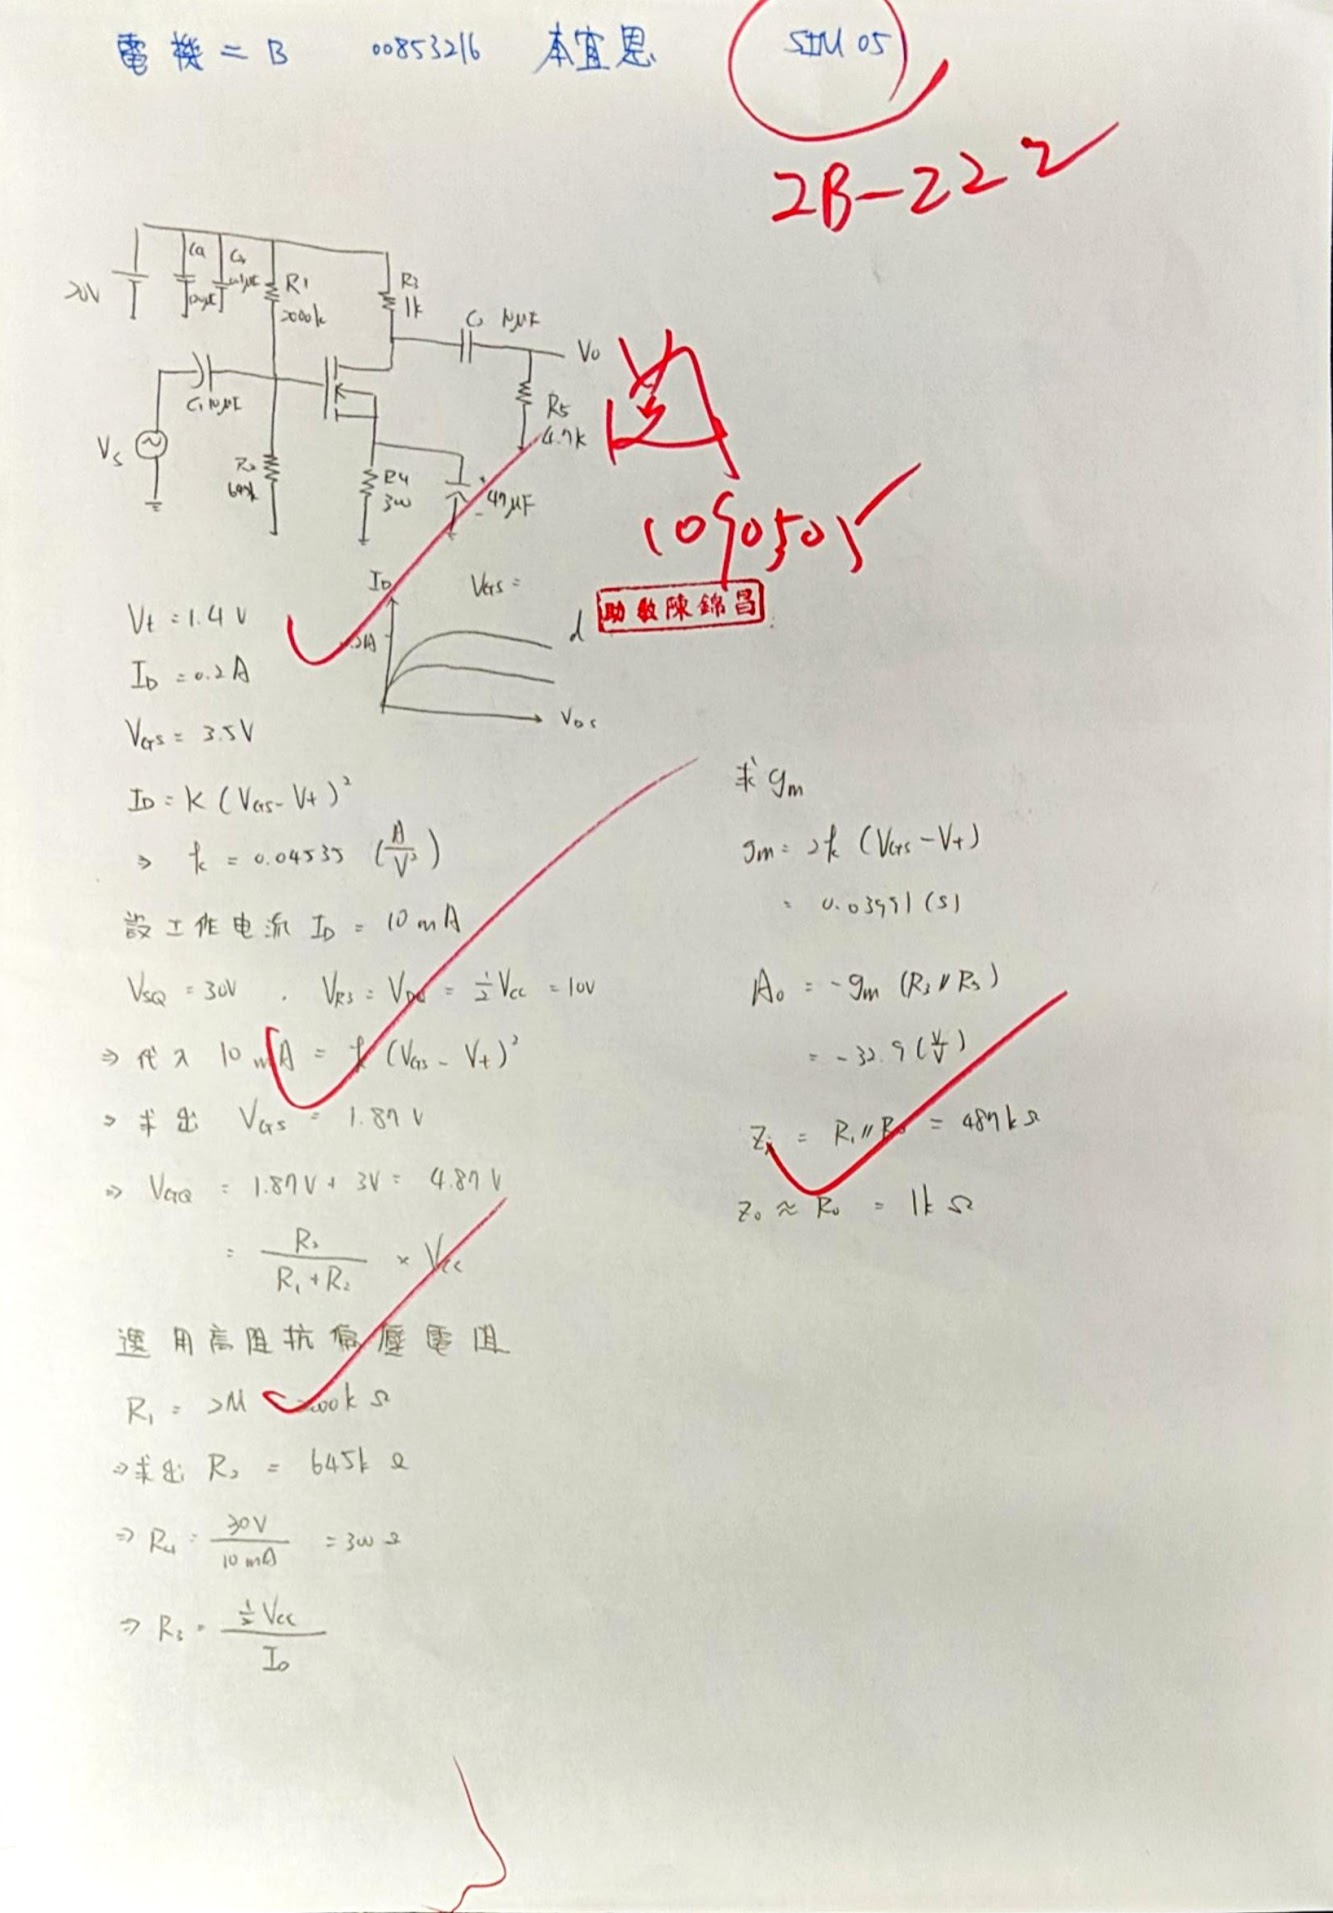 電機二B 00853216 本宜恩 SIM 05
2B-222
20V
Ca
10μF
R1
2000k
R3
1k
C1 10μF
10μF
Vo
R5
4.7k
Vs
R2
645k
R4
300
47μF
1090505
助教陳錦昌
ID
VGS =
VDS
Vt = 1.4 V
ID = 0.2 A
VGS = 3.5V
ID = K (VGS - Vt)²
⇒ k = 0.04535 (A/V²)
設工作电流 ID = 10 mA
VSQ = 30V . VR3 = = ½ VCC = 10V
⇒ 代入 10 mA = k (VGS - Vt)²
⇒ 求出 VGS = 1.87 V
⇒ VGQ = 1.87V + 3V = 4.87 V
= R2 / (R1 + R2) × VCC
選用高阻抗偏壓電阻
R1 = 2M = 2000k Ω
⇒ 求出 R2 = 645k Ω
⇒ R4 = 30V / 10 mA = 300 Ω
⇒ R3 = ½ VCC / ID
求 gm
gm = 2k (VGS - Vt)
= 0.03991 (S)
A0 = -gm (R3 // R5)
= -32.9 (V/V)
Zi = R1 // R2 = 487k Ω
Zo ≈ Ro = 1k Ω